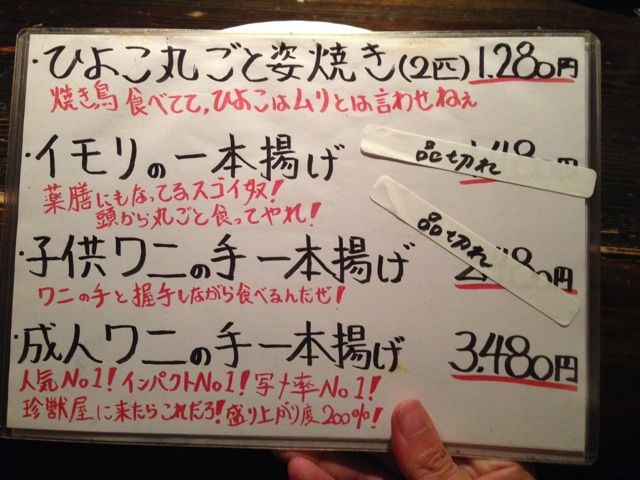 ・ひよこ丸ごと姿焼き(2匹) 1.280円
焼き鳥食べてて,ひよこはムリとは言わせねぇ
・イモリの一本揚げ
品切れ
薬膳にもなってるスゴイ奴!
頭から丸ごと食ってやれ!
品切れ
・子供ワニの手一本揚げ
ワニの手と握手しながら食べるんだぜ!
・成人ワニの手一本揚げ 3.480円
人気No1!インパクトNo1!写メ率No1!
珍獣屋に来たらこれだろ!盛り上がり度200%!